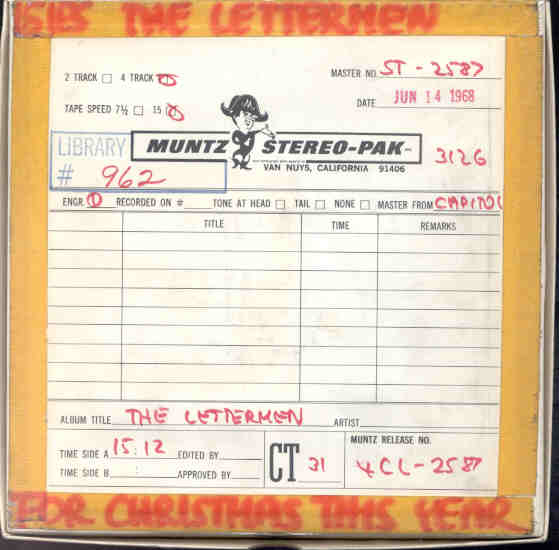 THE LETTERMEN
2 TRACK 4 TRACK MASTER NO. ST - 2587
TAPE SPEED 7½ 15 DATE JUN 14 1968
LIBRARY MUNTZ STEREO-PAK
# 962 VAN NUYS, CALIFORNIA 91406 3126
ENGR. 1 RECORDED ON # TONE AT HEAD TAIL NONE MASTER FROM CAPITOL
TITLE TIME REMARKS
ALBUM TITLE THE LETTERMEN ARTIST
TIME SIDE A 15:12 EDITED BY CT 31 MUNTZ RELEASE NO.
TIME SIDE B : APPROVED BY 4CL-2587
FOR CHRISTMAS THIS YEAR